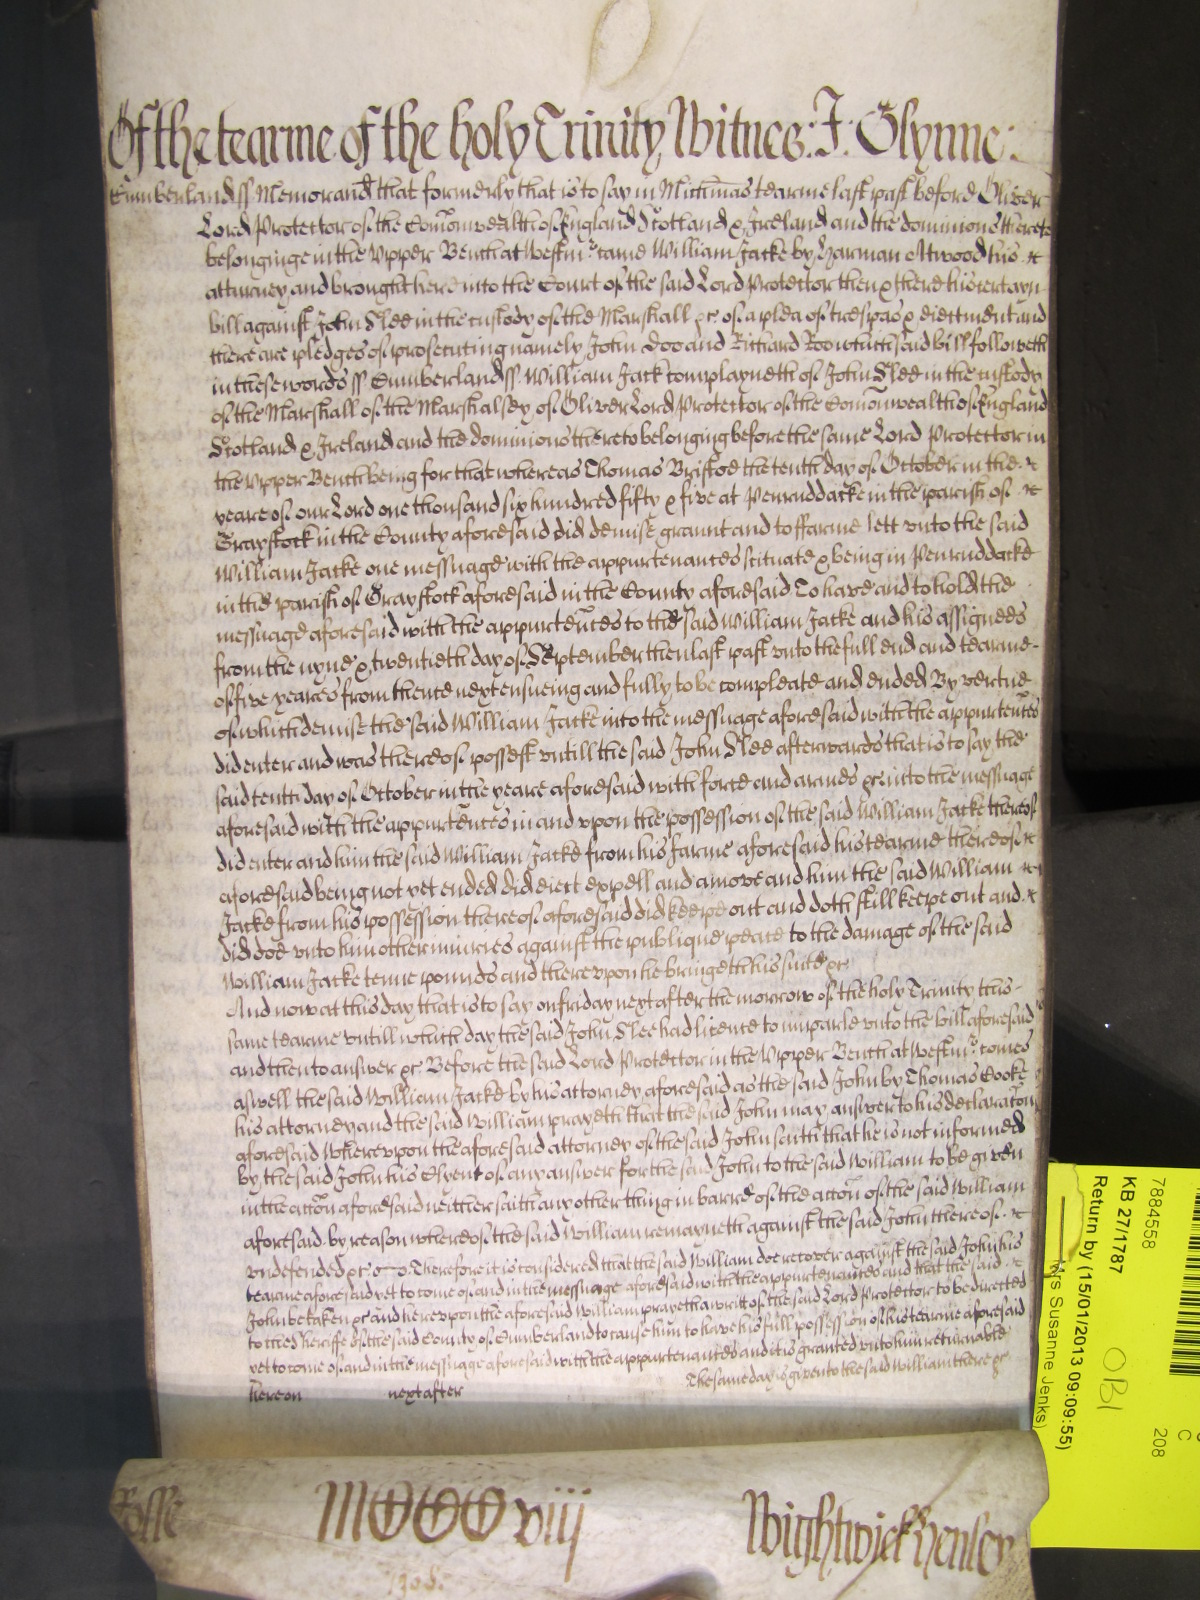 Of the tearme of the holy Trinity, Witnes: J: Glynne:
Cumberland ss Memorand that formerly that is to say in Michmas tearme last past before Oliver
Lord Protector of the Comonwealth of England Scotland & Ireland and the dominions thereto
belonginge in the Upper Bench at Westmr came William Jacke by Harman Atwood his
atturney and brought here into the Court of the said Lord Protector then & there his certayn
bill against John Slee in the custody of the Marshall &c of a plea of trespas & eiectment and
there are pledges of prosecuting namely John Doo and Richard Roo which said bill followeth
in these words ss Cumberland ss William Jack complayneth of John Slee in the custody
of the Marshall of the Marshalsey of Oliver Lord Protector of the Comonwealth of England
Scotland & Ireland and the dominions thereto belonging before the same Lord Protector in
the Upper Bench being for that whereas Thomas Briscoe the tenth day of October in the
yeare of our Lord one thousand six hundred fifty & five at Penruddacke in the parish of
Graystock in the County aforesaid did demise graunt and to ffarme lett unto the said
William Jacke one messuage with the appurtenances scituate & being in Penruddacke
in the parish of Graystock aforesaid in the County aforesaid To have and to hold the
messuage aforesaid with the appurtences to the said William Jacke and his assignees
from the nyne & twentieth day of September then last past unto the full end and tearme
of five yeares from thence next ensueing and fully to be compleate and ended By vertue
of which demise the said William Jacke into the messuage aforesaid with the appurtences
did enter and was thereof possest untill the said John Slee afterwards that is to say the
said tenth day of October in the yeare aforesaid with force and armes &c into the messuage
aforesaid with the appurtences in and upon the possession of the said William Jacke thereof
did enter and him the said William Jacke from his farme aforesaid his tearme thereof
aforesaid being not yet ended did eiect expell and amove and him the said William
Jacke from his possession thereof aforesaid did keepe out and doth still keepe out and
did doe unto him other iniuries against the publique peace to the damage of the said
William Jacke tenne pounds and thereupon he bringeth his suite &c
And now at this day that is to say on friday next after the morrow of the holy Trinity this
same tearme untill which day the said John Slee had licence to imparle unto the bill aforesaid
and then to answer &c Before the said Lord Protector in the Upper Bench at Westmr comes
aswell the said William Jacke by his attorney aforesaid as the said John by Thomas Cooke
his attorney and the said William prayeth that the said John may answer to his declaraton
aforesaid Whereupon the aforesaid attorney of the said John saith that he is not informed
by the said John his Clyent of any answer for the said John to the said William to be given
in the acton aforesaid neither saith any other thing in barre of the acton of the said William
aforesaid by reason whereof the said William remayneth against the said John thereof
undefended &c Therefore it is considered that the said William doe recover against the said John his
tearme aforesaid yet to come of and in the messuage aforesaid with the appurtenances and that the said
John be taken &c and hereupon the aforesaid William prayeth a writt of the said Lord Protector to be directed
to the sheriffe of the said County of Cumberland to cause him to have his full possession of his tearme aforesaid
yet to come of and in the messuage aforesaid with the appurtenances and it is granted unto him returnable
hereon next after The same day is given to the said William there &c
Rolle MCCCC viij Wightwick Henley
7884558
KB 27/1787
Return by (15/01/2013 09:09:55)
Mrs Susanne Jenks)
OBI
C
208